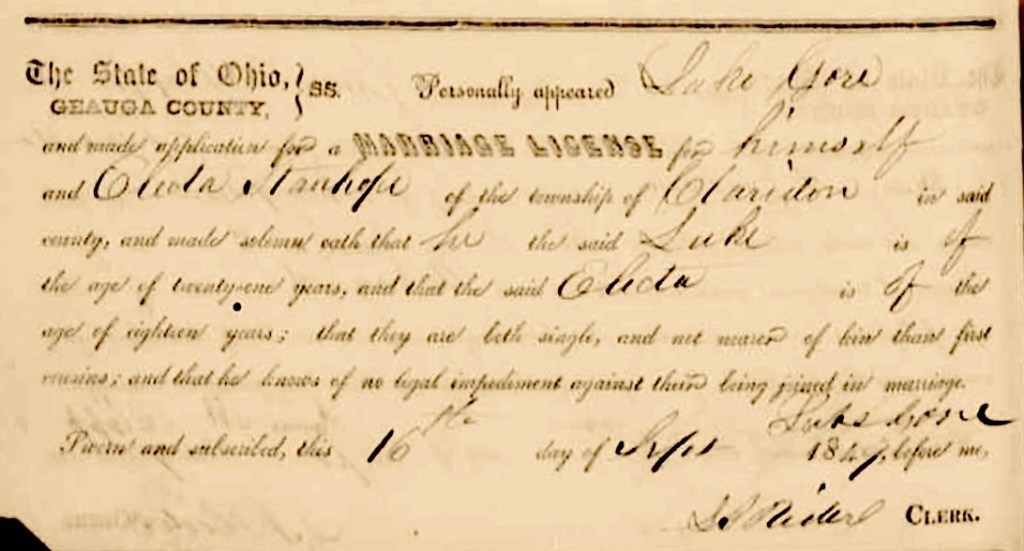 The State of Ohio, } ss. Personally appeared Luke Gore
GEAUGA COUNTY,
and made application for a MARRIAGE LICENSE for himself
and Electa Stanhope of the township of Claridon in said
county, and made solemn oath that he the said Luke is of
the age of twenty-one years, and that the said Electa is of the
age of eighteen years; that they are both single, and not nearer of kin than first
cousins; and that he knows of no legal impediment against their being joined in marriage.
Luke Gore
Sworn and subscribed, this 16th day of Sept 1847, before me,
CLERK.